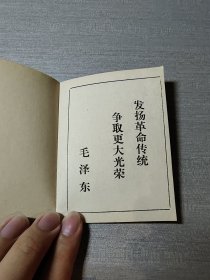 发扬革命传统
争取更大光荣
毛泽东